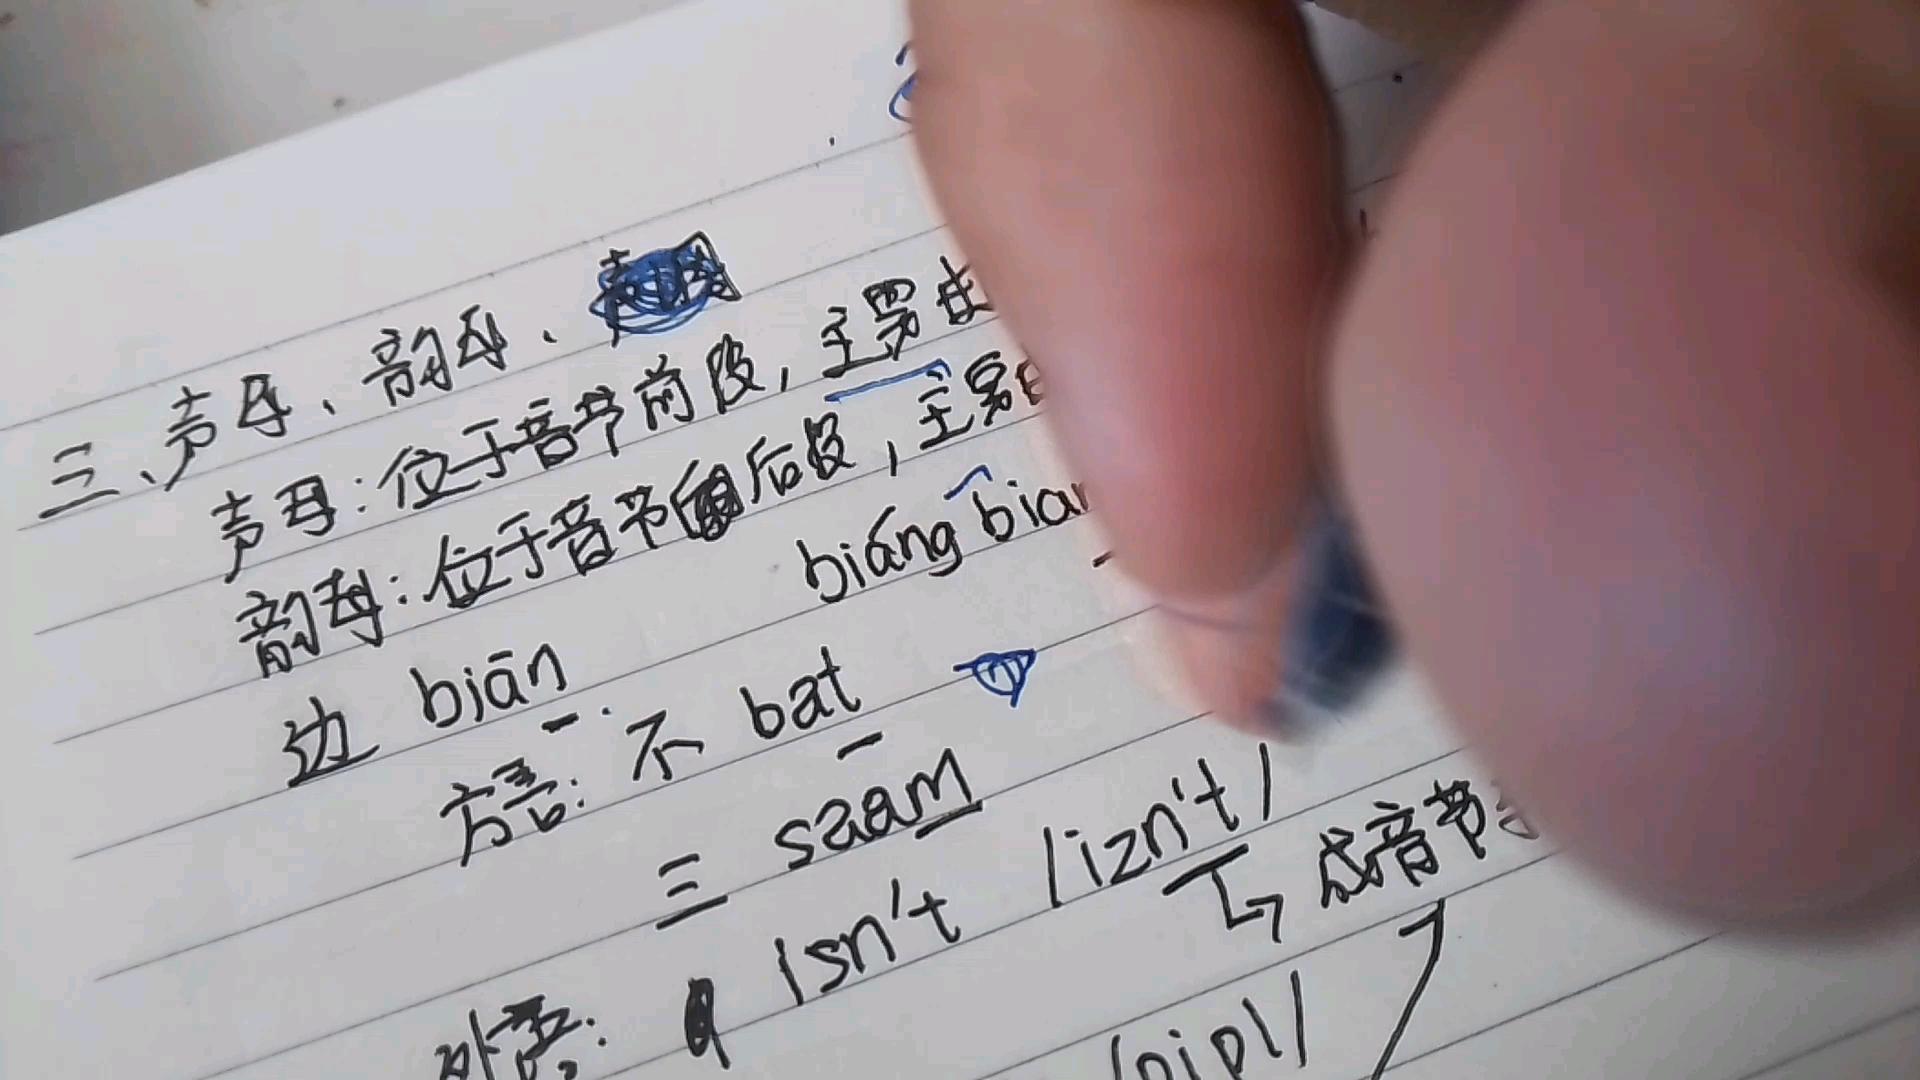 三、声母、韵母、
声母：位于音节前段，主要由
韵母：位于音节后段，主要由
biáng bian
边 biān
方言：不 bat
三 saam
外语： isn't /izn't/
成音节
/pipl/